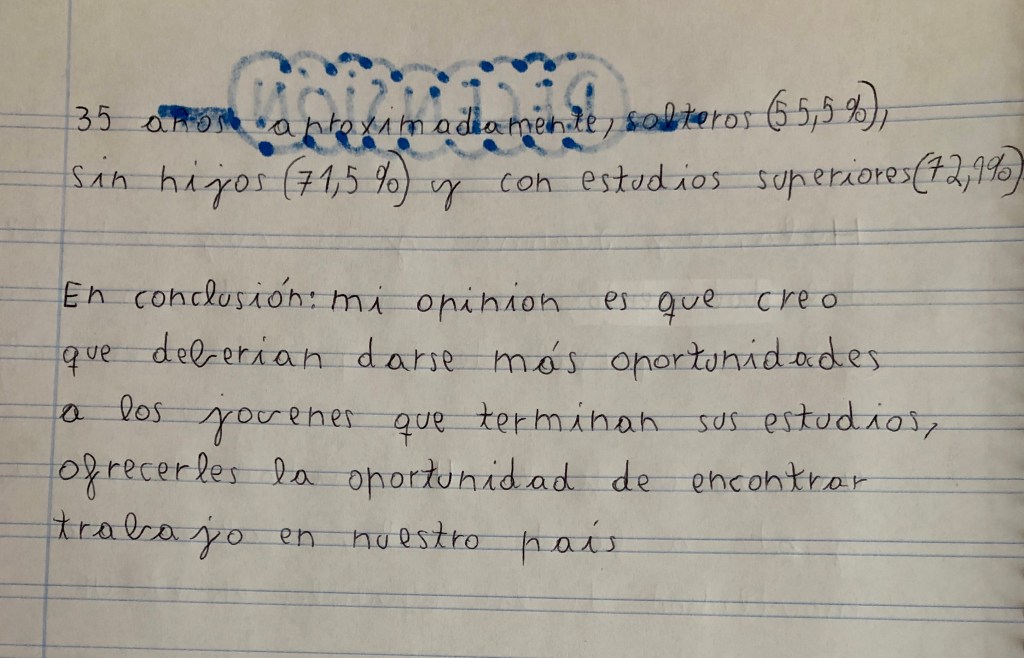 35 años aproximadamente, solteros (55,5 %),
sin hijos (71,5 %) y con estudios superiores (72,1%)
En conclusión: mi opinion es que creo
que deberian darse más oportunidades
a los jovenes que terminan sus estudios,
ofrecerles la oportunidad de encontrar
trabajo en nuestro país